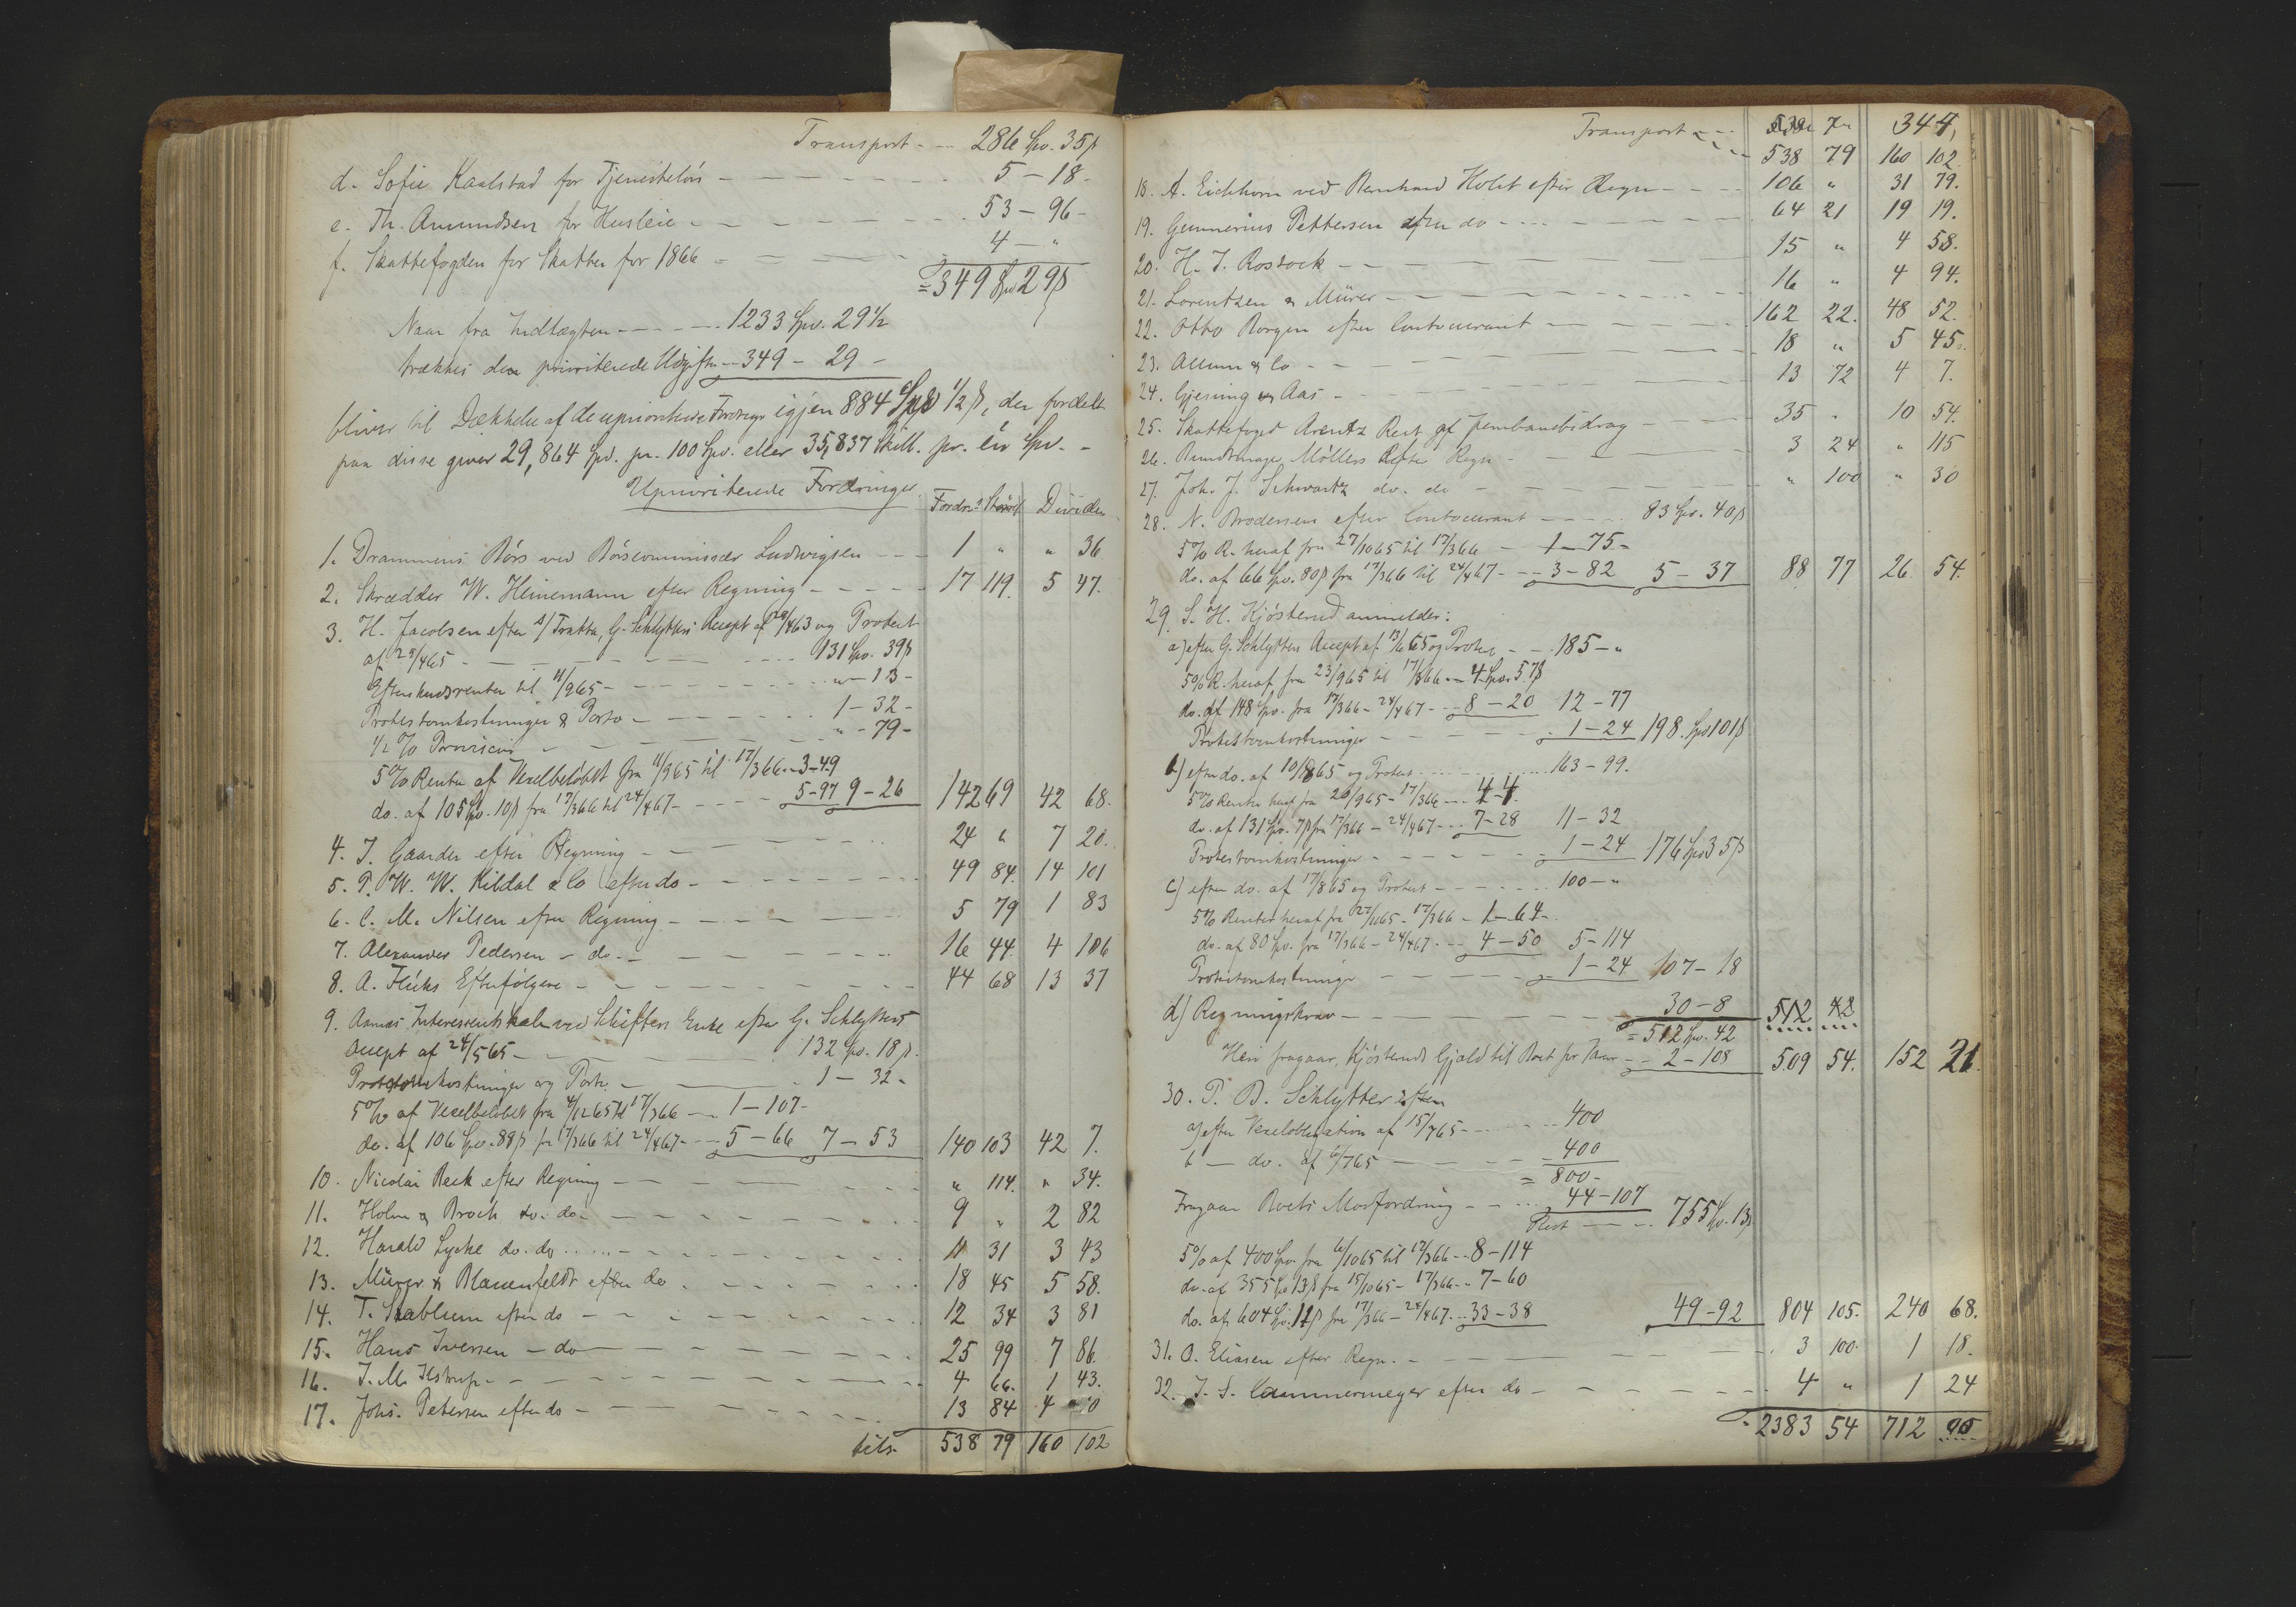 Transport - - - 286 Spd. 35 ß
d. Sofie Kaalstad for Tjenesteløn - - - 5 - 18 -
e. Th. Amundsen for Husleie - - - 53 - 96 -
f. Skattefogden for Skatter for 1866 - - - 4 - "
= 349 Spd 29 ß
Naar fra Indtægten - - - 1233 Spd. 29 1/2
trækkes den prioriterede Udgift - - 349 - 29 -
bliver til Dækkelse af de uprioriterede Fordringer igjen 884 Spd 1/2 ß, der fordelt
paa disse giver 29,864 Spd. pr. 100 Spd. eller 35,837 Skill. pr. én Spd. -
Uprioriterede Fordringer
Fordr.s Størrelse Dividen
1. Drammens Børs ved Børscommissær Ludwigsen - - - 1 " " 36
2. Skrædder W. Heinemann efter Regning - - - 17 119. 5 47.
3. H. Jacobsen efter Tratta, G. Schlytters Accept af 28/463 og Protest
af 28/465 - - - 131 Spd. 39 ß
Efterskudsrenter til 11/965 - - - " - 13 -
Protestomkostninger & Porto - - - 1 - 32 -
1/2 % Provision - - - " - 79 -
5% Renter af Vexelbeløbet fra 11/965 til 17/366 - 3 - 49
do. af 105 Spd. 10 ß fra 17/366 til 24/467 - - - 5 - 97 9 - 26 142 69 42 68.
4. J. Gaarder efter Regning - - - 24 " 7 20.
5. P. W. W. Kildal & Co efter do - - - 49 84. 14 101
6. C. M. Nilsen efter Regning - - - 5 79 1 83
7. Alexander Pedersen - do. - - - 16 44. 4 106
8. A. Flicks Efterfølgere - - - 44 68 13 37
9. Aamas Interessentskab ved Schiefters Enke efter G. Schlytters
Accept af 24/565 - - - 132 Spd. 18 ß.
Protestomkostninger og Porto. - - - 1 - 32 -
5% af Vexelbeløbet fra 4/1265 til 17/366 - 1 - 107 -
do. af 106 Spd. 88 ß fra 17/366 til 24/467 - - - 5 - 66 7 - 53 140 103 42 7.
10. Nicolai Beck efter Regning - - - " 114. " 34.
11. Holm & Broch do. do. - - - 9 " 2 82
12. Harald Lyche do. do - - - 11 31 3 43
13. Mürer & Blauenfeldt efter do - - - 18 45 5 58.
14. T. Stablum efter do - - - 12 34 3 81
15. Hans Iversen - do - - - 25 99 7 86.
16. J. M. Ilstrup - - - 4 66. 1 43.
17. Johs. Petersen efter do - - - 13 84 4 10
tils. 538 79 160 102
Transport - - - 344,
- - 538 79 160 102.
18. A. Eichhorn ved Bernhard Holst efter Regn - - - 106 " 31 79.
19. Gunnerius Pettersen efter do - - - 64 21 19 19.
20. H. J. Rostock - - - 15 " 4 58.
21. Lorentzen & Mürer - - - 16 " 4 94.
22. Otto Borgen efter Contocurant - - - 162 22. 48 52.
23. Allum & Co - - - 18 " 5 45.
24. Gjesing & Aas - - - 13 72 4 7.
25. Skattefoged Arentz Rest af Jernbanebidrag - - - 35 " 10 54.
26. Bundtmager Møllers Efter Regn - - - 3 24 " 115
27. Joh. J. Schwartz do. do - - - " 100 " 30
28. N. Brodersen efter Contocurant - - - 83 Spd. 40 ß
5% R. heraf fra 27/1065 til 17/366 - 1 - 75 -
do. af 66 Spd. 80 ß fra 17/366 til 24/467 - - 3 - 82 5 - 37 88 77 26 54.
29. S. H. Kjøsterud anmelder:
a) efter G. Schlytters Accept af 13/665 og Protest - - 185 - "
5% R. heraf fra 23/965 til 17/366 - 4 Spd. 57 ß
do. af 148 Spd. fra 17/366 - 24/467 - - 8 - 20 12 - 77
Protestomkostninger - - - 1 - 24 198 Spd 101 ß
b) efter do. af 10/865 og Protest - - - 163 - 99.
5% Renter heraf fra 20/965 - 17/366 - - 4 - 4.
do. af 131 Spd. 7 ß fra 17/366 - 24/467 - - 7 - 28 11 - 32
Protestomkostninger - - - 1 - 24 176 Spd 35 ß
c) efter do. af 17/865 og Protest - - - 100 - "
5% Renter heraf fra 27/1165 - 17/366 - 1 - 64 -
do. af 80 Spd. fra 17/366 - 24/467 - - 4 - 50 5 - 114
Protestomkostninger - - - 1 - 24 107 - 18
d) Regningskrav - - - 30 - 8 512 42
= 512 Spd. 42
Heri fragaar, Kjøsteruds Gjæld til Boet for Varer - - 2 - 108 509 54. 152 21.
30. P. B. Schlytter
a) efter Vexelobligation af 15/765 - - - 400
b - do. af 6/765 - - - 400
= 800 -
Fragaar Boets Modfordring - - - 44 - 107
Rest - - - 755 Spd. 13 ß
5% af 400 Spd. fra 6/1065 til 17/366 - - 8 - 114
do. af 355 Spd 13 ß fra 15/1065 - 17/366 - - 7 - 60
do. af 604 Spd. 11 ß fra 17/366 - 24/467 - - 33 - 38 49 - 92 804 105. 240 68.
31. O. Eliasen efter Regn. - - - 3 100. 1 18.
32. J. S. Cammermeyer efter do - - - 4 " 1 24
2383 54 712 90